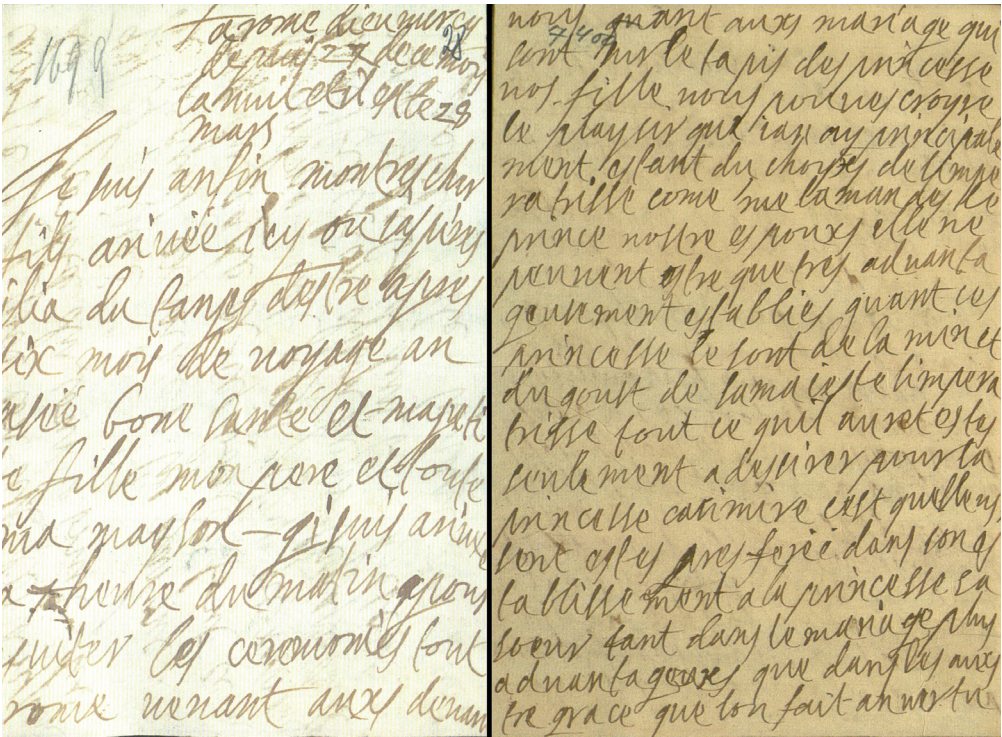 1699
28
a rome dieu mercy
depuis 27 de ce mois
la nuit et il est le 28
mars
Je suis anfin mon tres cher
fils arivée icy ou
ilia du tamps destre apres
six mois de voyage an
bone santé et ma peti
te fille mon pere et toute
ma mayson gi suis arivée
a 7 heure du matin pour
eviter les ceremonies tout
rome venant auxs devan
nous quant auxs mariage qui
7400
sont sur le tapis des princesse
nos fille vous pouves croyre
le playsir que ian ay principale
ment estant du choyxs de limpe
ratrisse come me la mandes le
prince vostre espouxs elle ne
peuvent estre que tres advanta
geusement establies quant ces
princesse le sont de la min et
du goust de sa maieste limpera
trisse tout ce quil auret estes
seulement a dessirer pour la
princesse casimire cest quelle eus
sent estes presferée dans son es
tablissement a la princesse sa
soeur tant dans le mariage plus
advantageuxs que dans les auxs
tre grace que lon fait an vertu